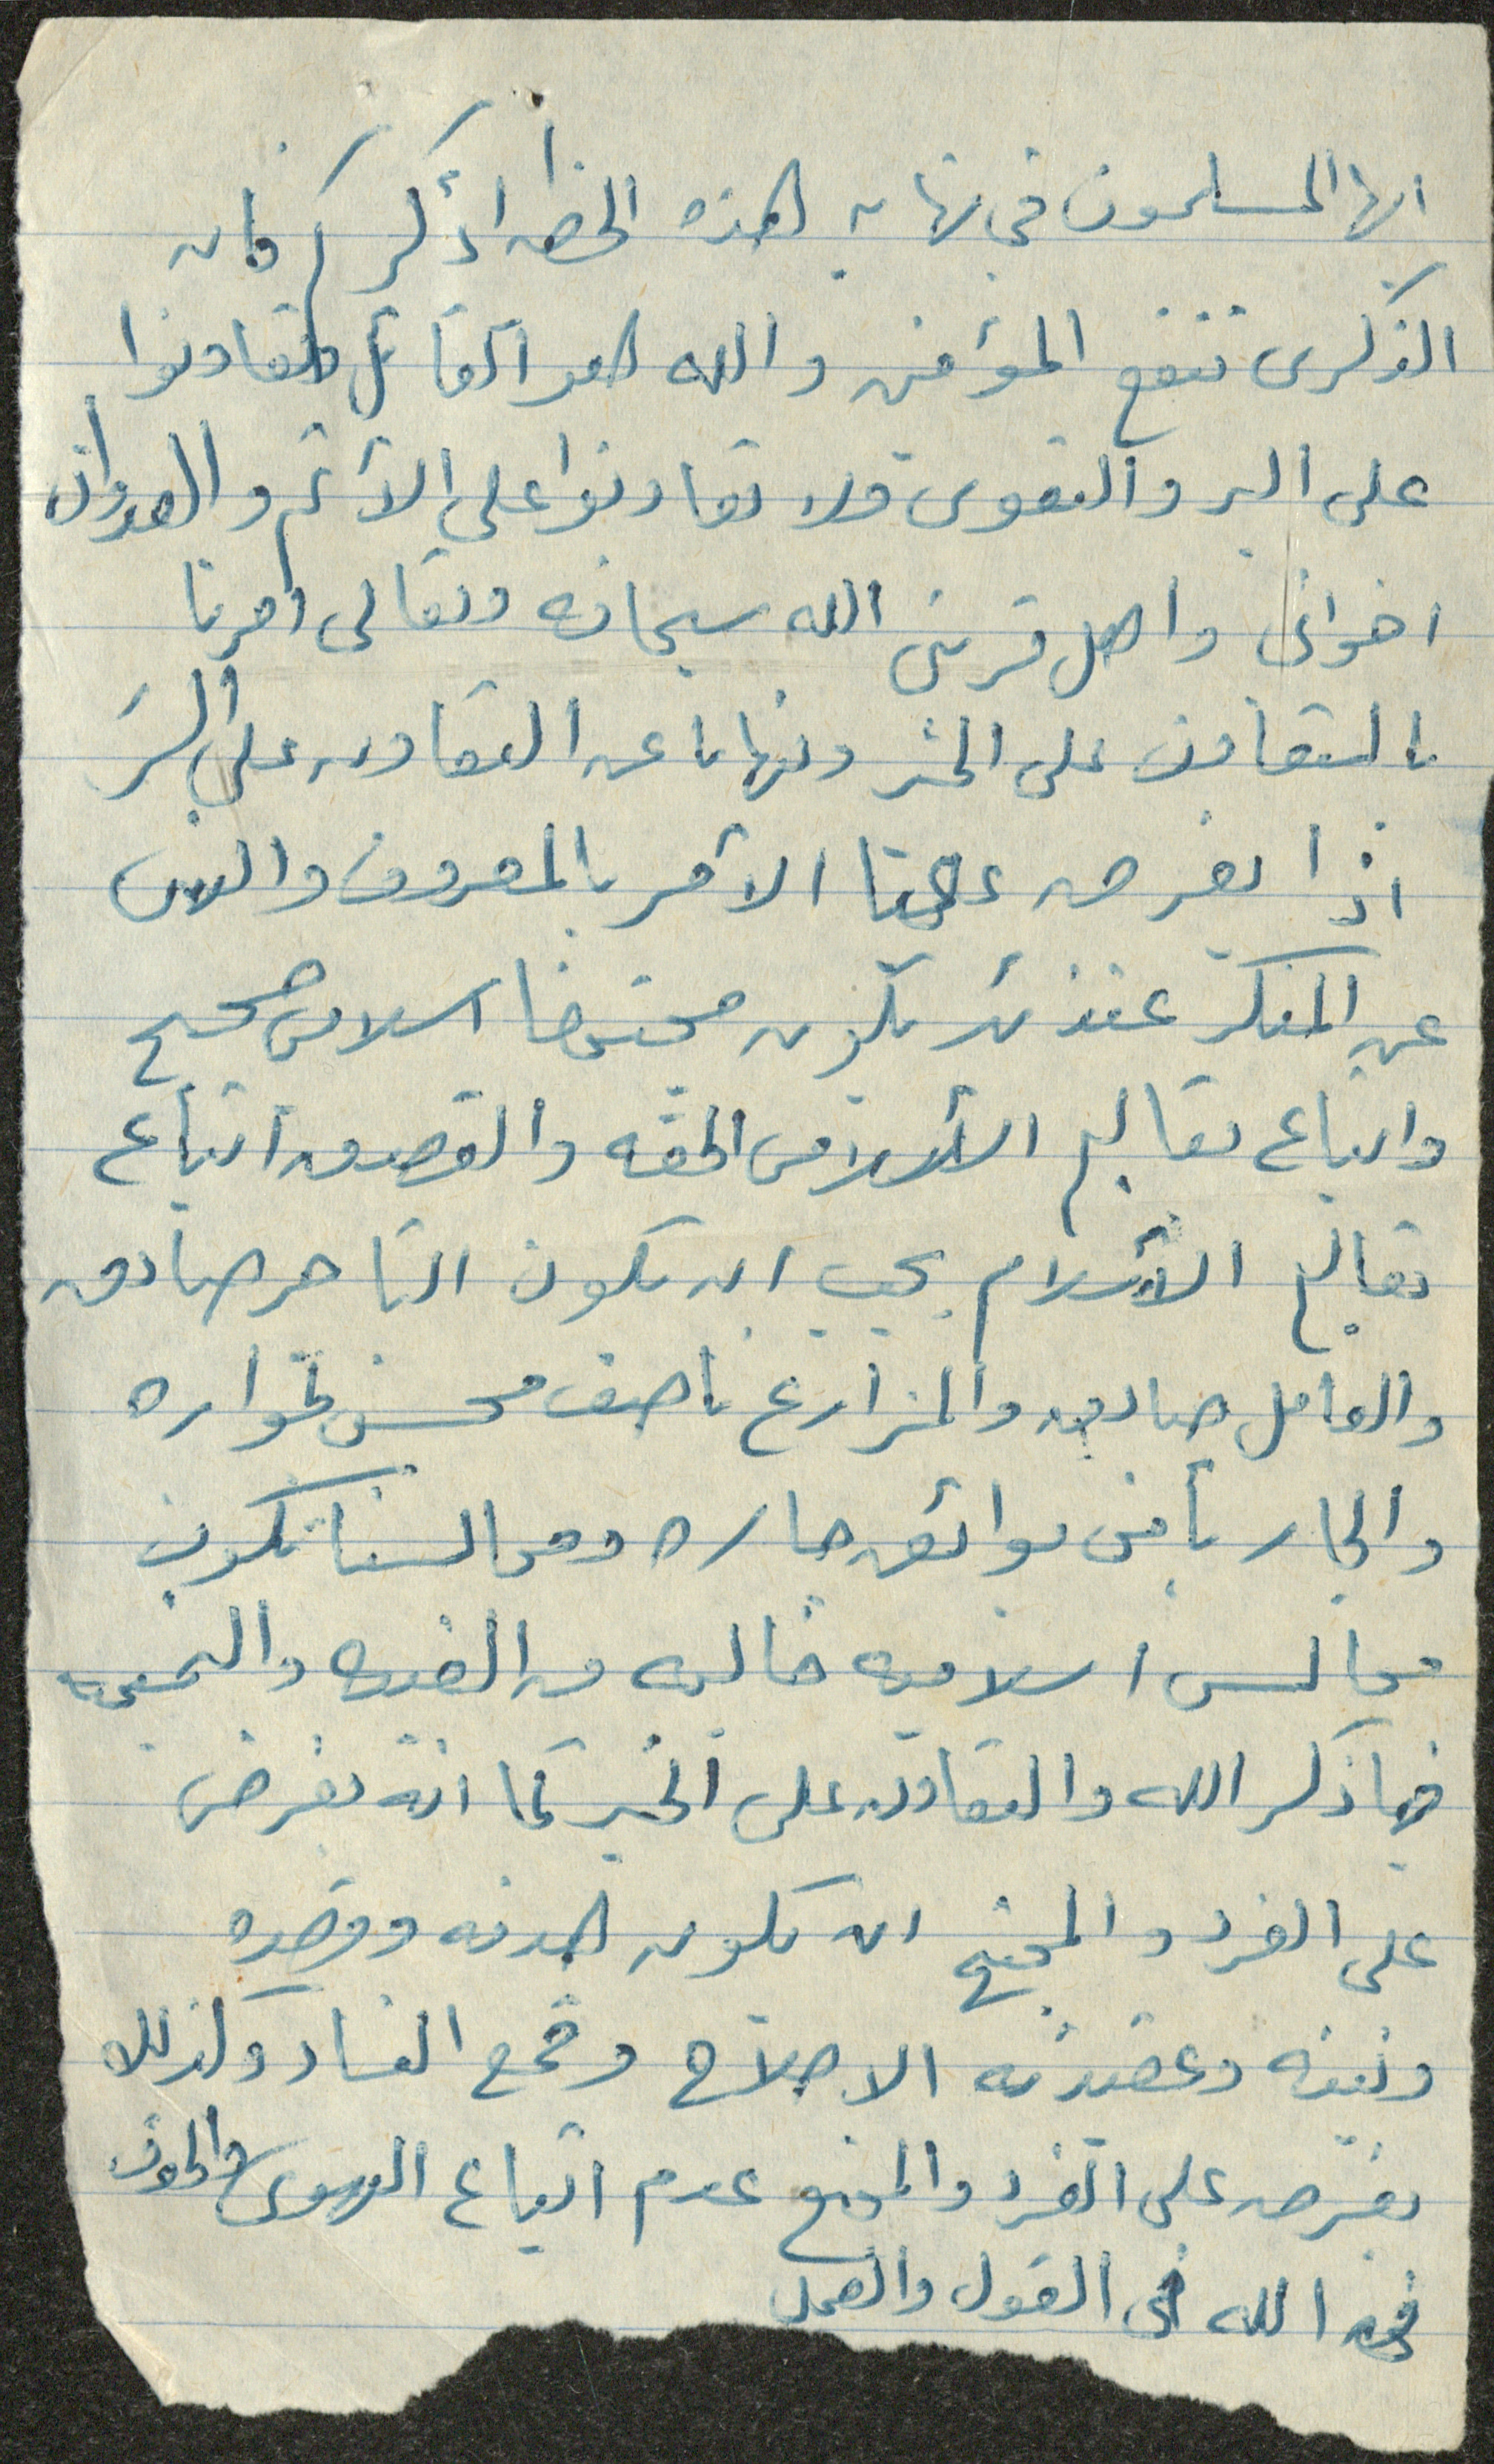 ايها المسلمون في نهايه هذه الخطبه اذكركم فان
الذكرى تنفع المؤمنين والله هو القائل وتعاونوا
على البر والتقوى ولا تعاونوا على الأثم والعدوان
اخواني واهل قريتي الله سبحانه وتعالى امرنا
بالتعاون على الخير ونهانا عن التعاون على الشر
اذا يفرض علينا الأمر بالمعروف والنهي
عن المنكر عندئذ يكون مجتمعنا اسلامي صحيح
واتباع تعاليم الأسلام الحقه والقصد من اتباع
تعاليم الأسلام يجب ان يكون التاجر صادق
والعامل صادق والمزارع ناصف محسن لجواره
والجار يأمن بوائق جاره ومجالسنا تكون
مجالس اسلاميه خاليه من الغيبه والنميمه
فيها ذكر الله والتعاون على الخير كما انه يفرض
على الفرد والمجتمع ان يكون هدفه وقصده
ونيته وعقيدته الاصلاح وقمع الفساد وكذلك
يفرض على الفرد والمجتمع عدم اتباع الهوى والخوف
من الله في القول والعمل